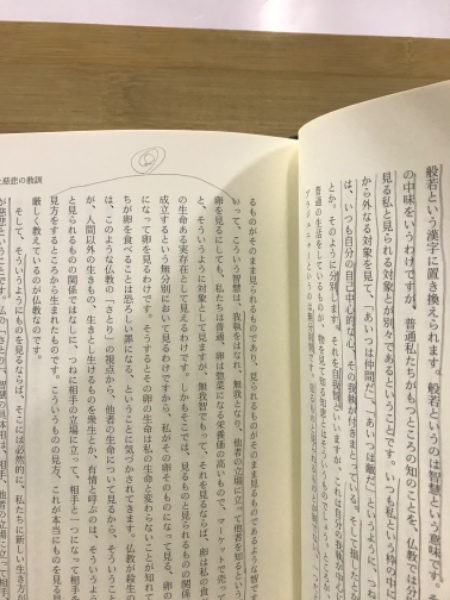 般若という漢字に置き換えられます。般若というのは智慧という意味です。
の中味をいうわけですが、普通私たちがもつところの知のことを、仏教では分
見る私と見られる対象とが別々であるということです。いつも私という枠の中に
から外なる対象を見て、「あいつは仲間だ」、「あいつは敵だ」というように、つね
は、いつも自分の自己中心的な心、その我執が付きまとっている。そして損したとか
とか、そのように分別します。それを自我智といいますが、これは自分が中心
普通の生活をしているものが、物を見て知る知恵とはそういうものでしょう。ところが、
というのは無分別智です。見るものと見られるものとが別でない、
と慈悲の教訓
るものがそのまま見られるものであり、見られるものがそのまま見るものであるような智です
いって、こういう智慧は、我執をはなれ、無我となり、他者の立場に立って他者を知るという
卵を見るにしても、私たちは普通、卵は惣菜になる栄養価の高いもので、マーケットで売っ
と、そういうように対象として見ますが、無我智でもって、それを見るならば、卵は私の
の生命ある実存在として見えるわけです。しかもそこでは、見るものと見られるものの関係
成立するという無分別において見るわけですから、私がその卵そのものになって見る、卵の
になって卵を見るわけです。そうするとその卵の生命は私の生命と変わらないことが知れて
ちが卵を食べることは恐ろしい罪になる、ということに気づかされてきます。仏教が殺生
は、このような仏教の「さとり」の視点から、他者の生命について見るから、そう
が、人間以外の生きもの、生きとし生けるものを衆生とか、有情と呼ぶのは、そういうよう
と見られるものの関係ではなしに、つねに相手の立場に立って、相手と一つになって相手を
見方をするところから生まれたものです。こういうものの見方が、これが本当にものを見る
厳しく教えているのが仏教なのです。
そして、そういうようにものを見るならば、そこには必然的に、私たちに新しい生き方
が慈悲ということです。